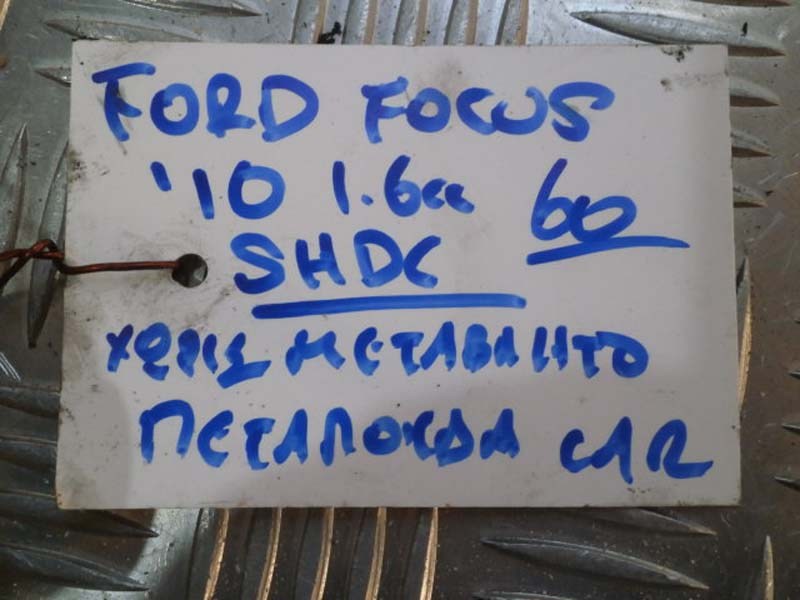 FORD FOCUS
'10 1.6cc 60
SHDC
ΧΩΡΙΣ ΜΕΤΑΒΛΗΤΟ
ΠΕΤΑΛΟΥΔΑ CAR